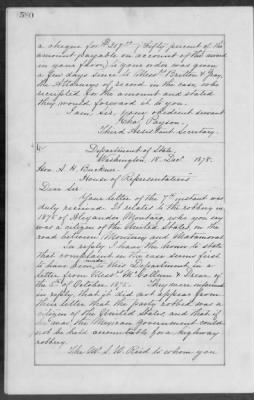 580
a cheque for $217.00 (Fifty percent of the
amount payable on account of the award
in your favor) to your order was given
a few days since to Messrs Britton & Gray,
the Attorneys of record in the case, who
receipted for the amount and stated
they would forward it to you.
I am, sir, your obedient servant
Chas. Payson,
Third Assistant Secretary.
Department of State,
Washington, 18. Decr 1878.
Hon. A. H. Buckner
House of Representatives
Dear Sir
Your letter of the 7th instant was
duly received. It relates to the robbery in
1875 of Alexander Montaro, who you say
was a citizen of the United States, on the
road between Monterey and Matamoras
In reply I have the honor to state
that complaint in the case seems first
to have been made to this Department in a
letter from Messrs McCallum & Shear of
the 5th of October 1875. They were informed
in reply, that it did not appear from
their letter that the party robbed was a
citizen of the United States, and that if
he was the Mexican Government could
not be held accountable for a highway
robbery.
The Mr. S. W. Reid to whom you